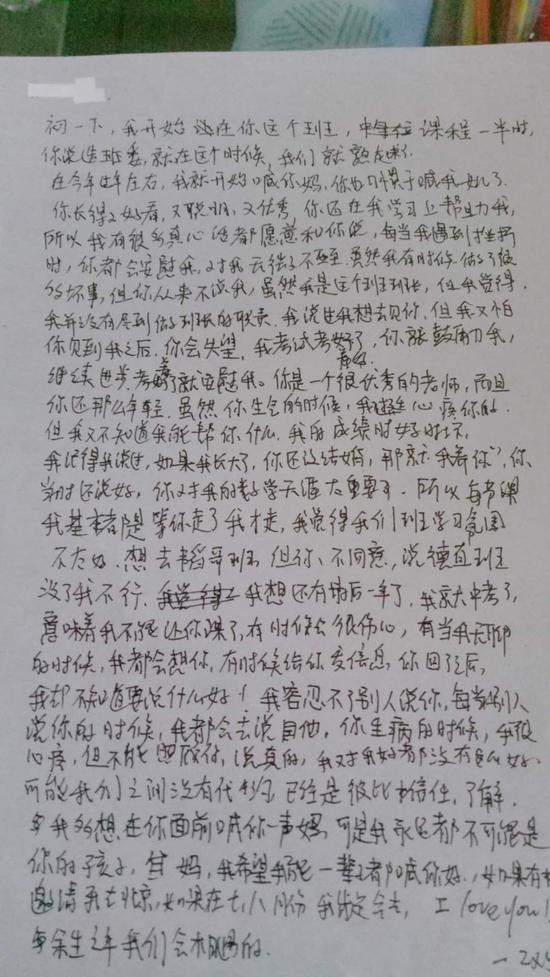 初一下，我开始进在你这个班，课程一半时，
你说进班委，就在这个时候，我们就熟起来了。
在今年年左右，我就开始喊你妈，你也习惯于喊我女儿了。
你长得又好看，又聪明，又优秀，你还在我学习上帮助我，
所以我有很多真心话都愿意和你说，每当我遇到挫折
时，你都会安慰我，对我云经了不至。虽然我有时候做了很
多坏事，但你从来不说我，虽然我是这个班班长，但我觉得
我并没有尽到做好班长的职责。我说过我想去见你，但我又怕
你见到我之后，你会失望，我考试考好了，你就鼓励我，
继续进步，考差了就安慰我。你是一个很优秀的老师，而且
你还那么年轻。虽然你生气的时候，我挺心疼你的。
但我又不知道我能帮你什么。我的成绩时好时坏，
我记得我说过，如果我长大了，你还没结婚，那就我养你，你
当时还说好，你对我的数学天涯太重要了。所以每节课
我基本都是等你走了我才走，我觉得我们班学习氛围
不太好，想去韬哥班，但你不同意，说德直班
没了我不行。我想还有最后一年了，我就大中考了，
意味着我不能上你课了，有时候会很伤心，有当我无聊
的时候，我都会想你，有时候给你发信息，你回了之后，
我却不知道要说什么好！我容忍不了别人说你，每当别人
说你的时候，我都会去说其他，你生病的时候，我很
心疼，但不能照顾你，说真的，我对我好都没有这么好，
可能我们之间没有代沟，已经是彼此信任，了解。
我多想在你面前喊你一声妈，可是我永远都不可能是
你的孩子，但妈，我希望我能一辈子都喊你好，如果有
邀请我去北京，如果在七八月份我肯定会去，I love you!
余生之年我们会相遇的。